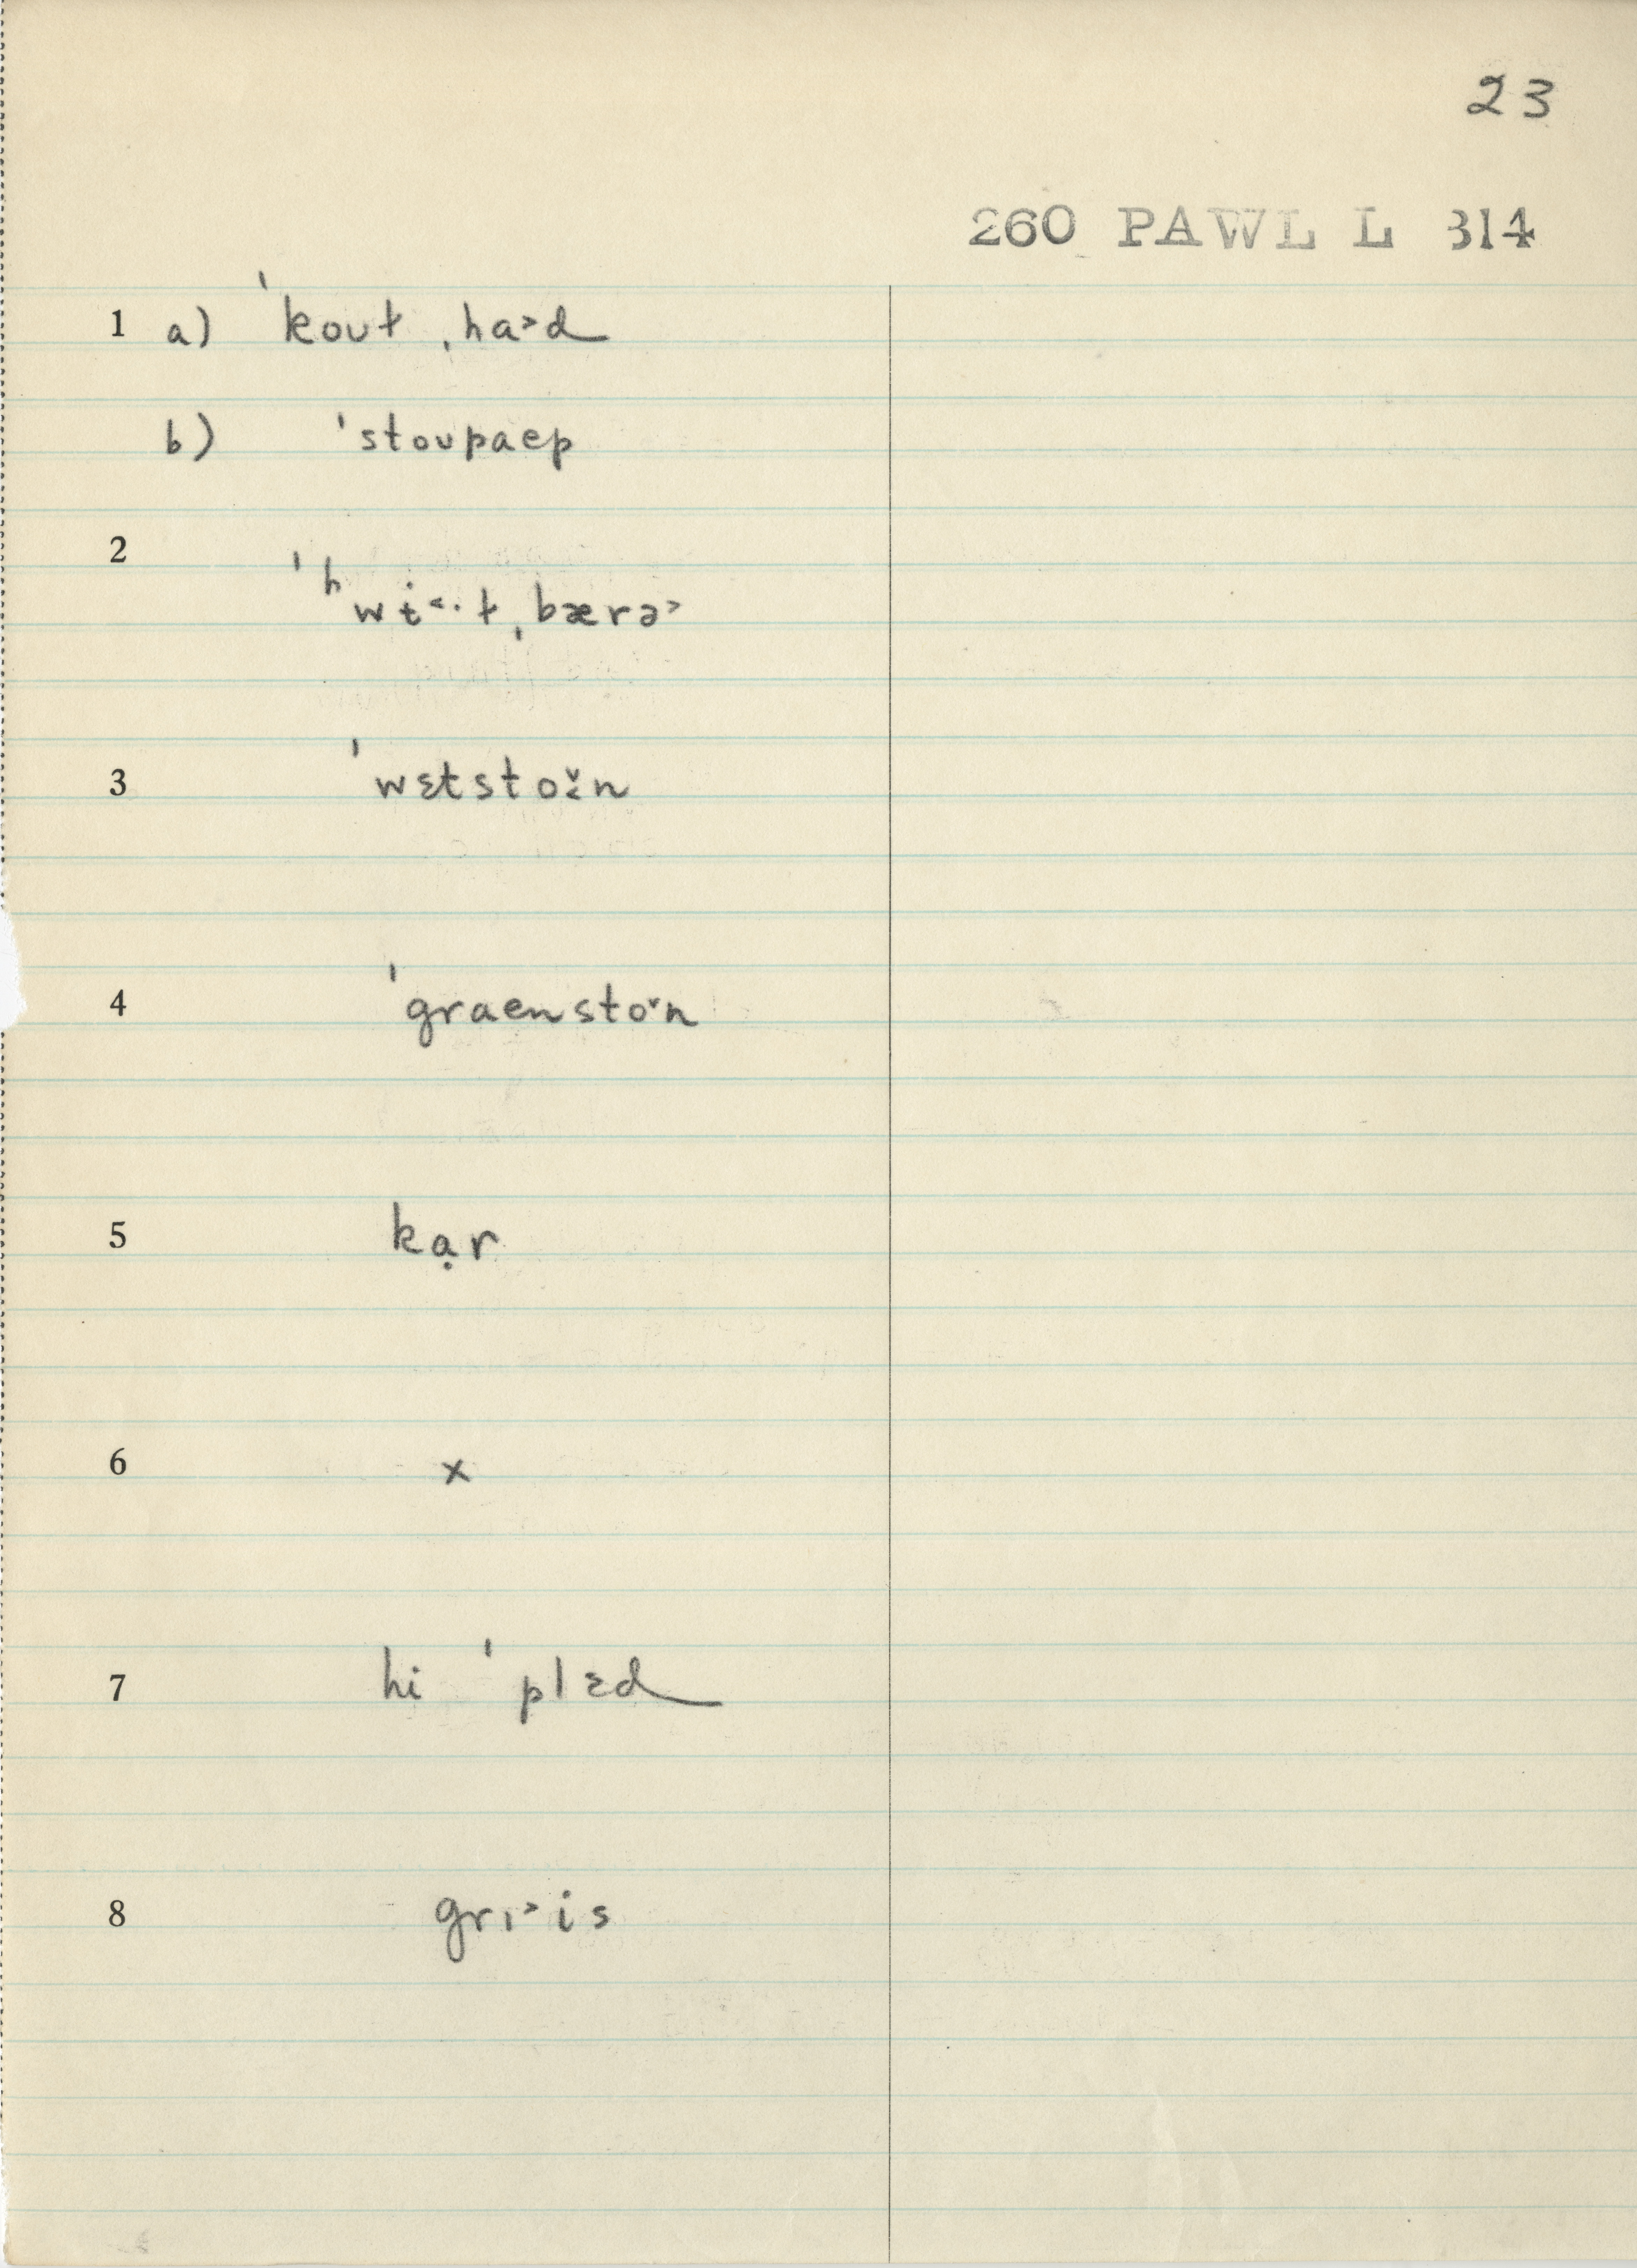 23
260 PAWL L 314
1 a) ˈkoʊɫ ˌha˃d
b) ˈstoʊpaep
2 ˈʰwɨ˂·ɫˌbærə˃
3 ˈwɛtsto̬˞n
4 ˈgraenstoˇn
5 kạr
6 x
7 hi ˈplɛd
8 grɪ˃is